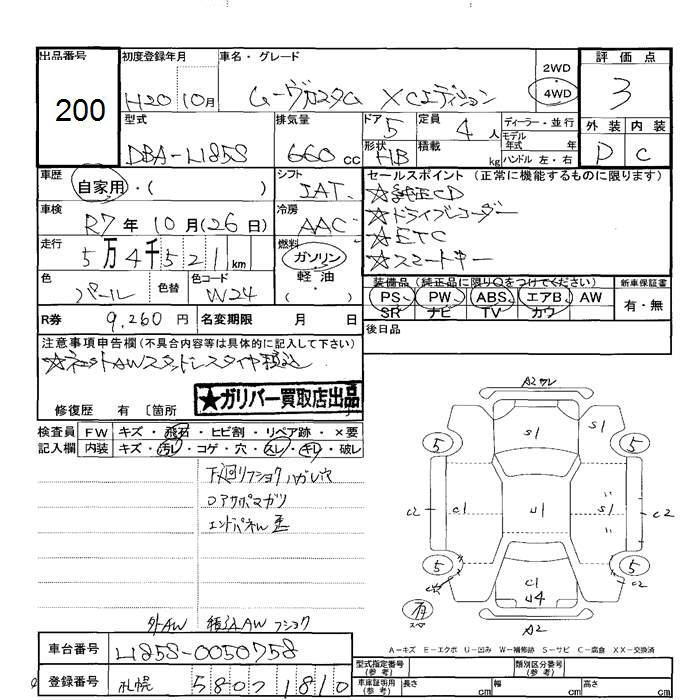 出品番号 初度登録年月 車名・グレード 2WD 4WD 評価点
200 H20 10月 ムーヴカスタム Xエディション 3
型式 排気量 ドア 定員 ディーラー・並行 外装 内装
DBA-L185S 660cc 5 4人 モデル年式 年 D C
形状 HB 積載 kg ハンドル 左・右
車歴 自家用・( ) シフト IAT
セールスポイント (正常に機能するものに限ります)
☆純正CD
☆ドライブレコーダー
☆ETC
☆スマートキー
車検 R7年10月(26日) 冷房 AAC
走行 5万4千521km 燃料 ガソリン 軽油・( )
色 パール 色替 色コード W24
装備品 (純正品に限り○をつけてください) 新車保証書
PS PW ABS エアB AW 有・無
SR ナビ TV カワ
R券 9,260円 名変期限 月 日
後日品
注意事項申告欄(不具合内容等は具体的に記入して下さい)
☆ネットAWスタッドレスタイヤ積込
★ガリバー買取店出品
修復歴 有 〔箇所
検査員記入欄 FW キズ・飛石・ヒビ割・リペア跡・×要
内装 キズ・汚レ・コゲ・穴・スレ・キレ・破レ
下廻リフショク ハガレ穴
コアサポマガリ
エンドパネル歪
外AW 積込AW フショク
A2 ワレ
S1 S1
5 5
C2 C1 U1 S1 C2
5 5
C2
C1
U4
有
スペア
A2
A-キズ E-エクボ U-凹み W-補修跡 S-サビ C-腐食 XX-交換済
車台番号 L185S-0050758
登録番号 札幌 580 2 1810
型式指定番号(参考) 類別区分番号(参考)
車庫証明用(参考) 長さ cm 幅 cm 高さ cm